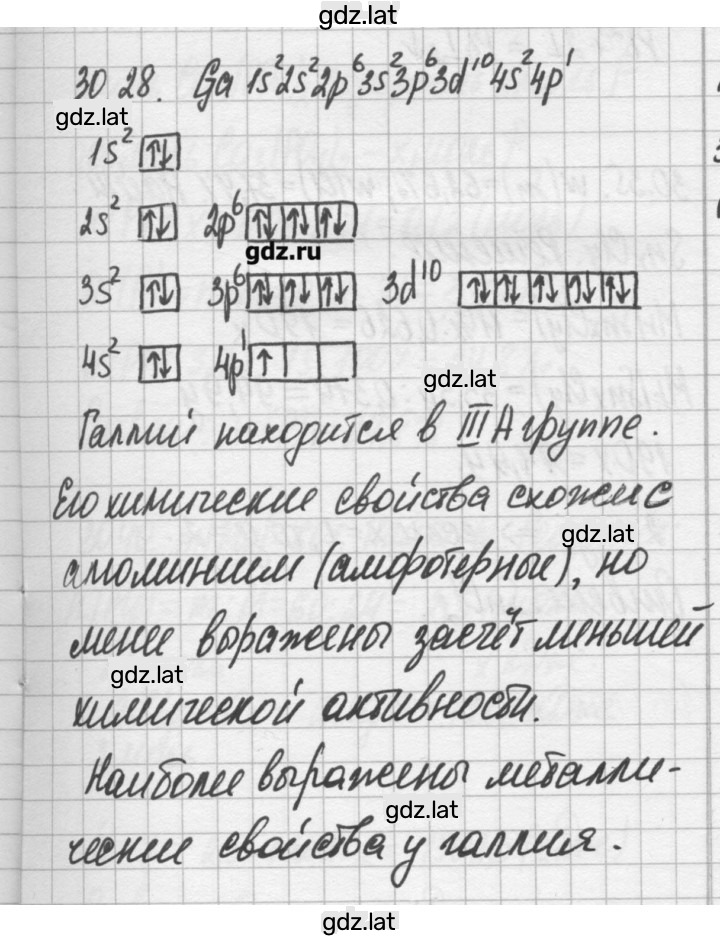 gdz.lat
30.28. Ga 1s²2s²2p⁶3s²3p⁶3d¹⁰4s²4p¹
gdz.lat
1s² ↑↓
2s² ↑↓ 2p⁶ ↑↓ ↑↓ ↑↓
gdz.ru
3s² ↑↓ 3p⁶ ↑↓ ↑↓ ↑↓ 3d¹⁰ ↑↓ ↑↓ ↑↓ ↑↓ ↑↓
4s² ↑↓ 4p¹ ↑
gdz.lat
Галлий находится в III А группе.
Его химические свойства схожи с
gdz.lat
алюминием (амфотерные), но
менее выражены засчёт меньшей
gdz.lat
химической активности.
Наиболее выражены металли-
gdz.lat
ческие свойства у галлия.
gdz.lat